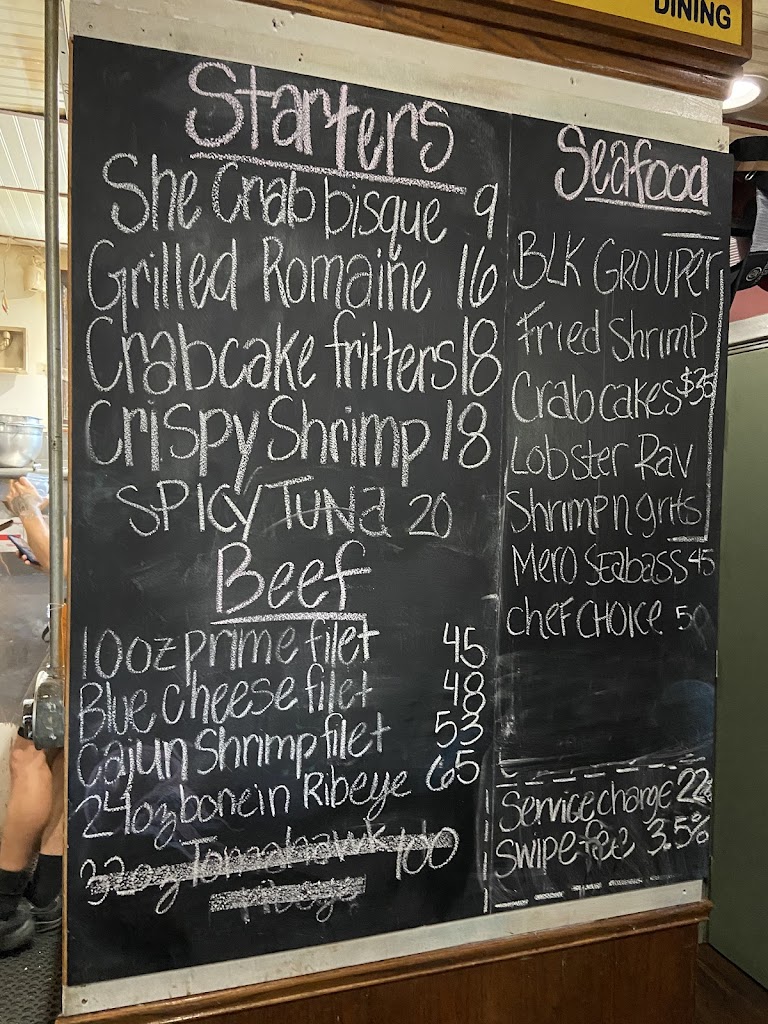 DINING
Starters
She Crab bisque 9
Grilled Romaine 16
Crabcake fritters 18
Crispy Shrimp 18
SPICY TUNA 20
Beef
10oz prime filet 45
Blue Cheese filet 48
Cajun Shrimp filet 53
24oz bonein Ribeye 65
32oz Tomahawk 100
ribeye
Seafood
BLK GROUPER
Fried Shrimp
Crabcakes $35
Lobster Rav
Shrimp n grits
Mero Seabass 45
chef CHOICE 50
Service charge 22%
Swipe fee 3.5%